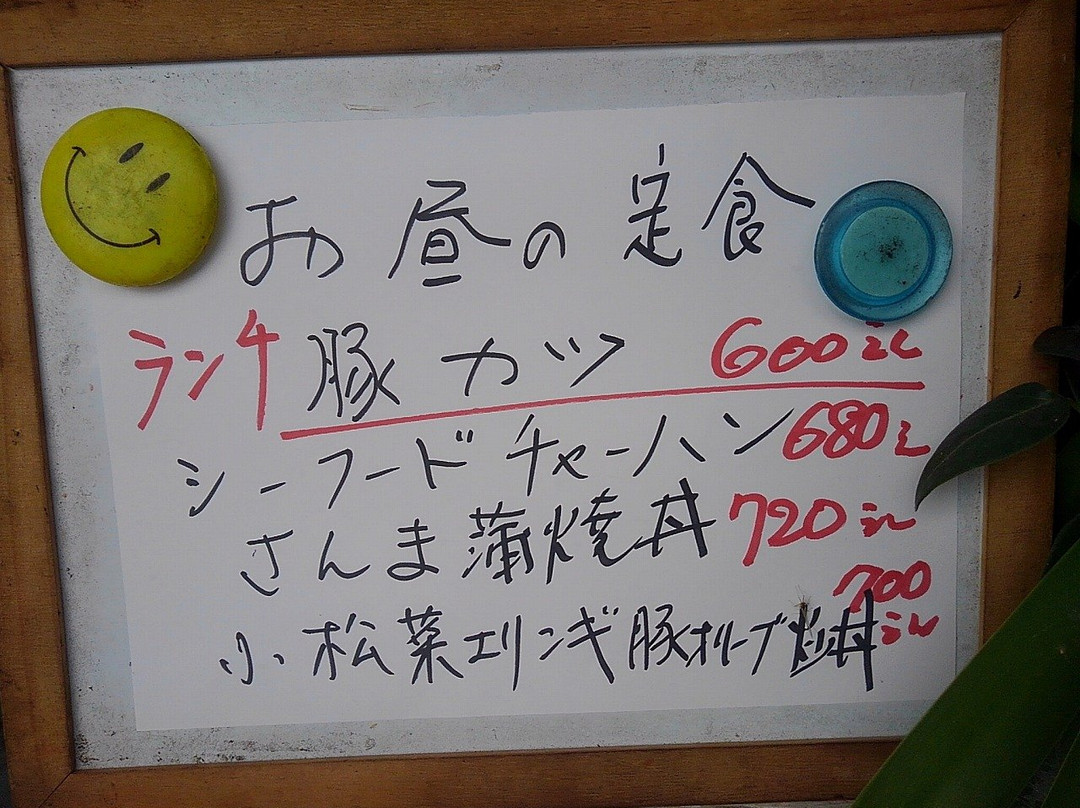 お昼の定食
ランチ 豚カツ 600えん
シーフードチャーハン 680えん
さんま蒲焼丼 720えん
小松菜エリンギ豚オリーブ炒丼 700えん